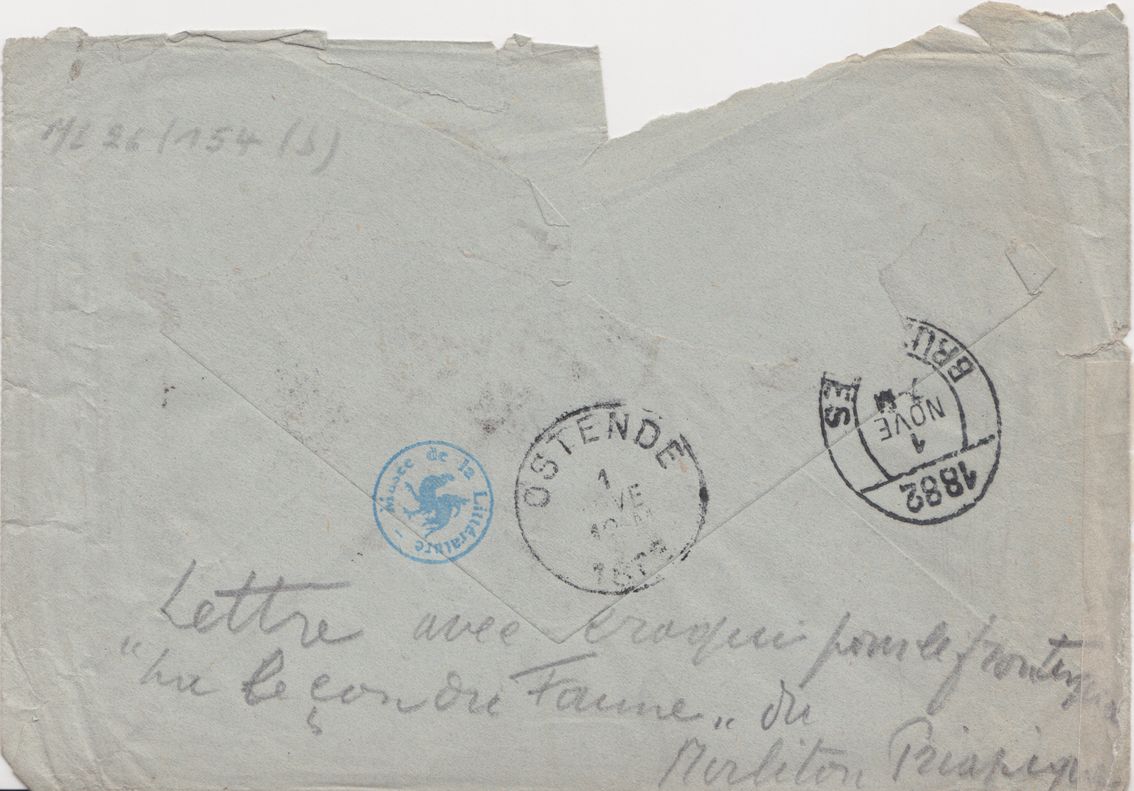 ML 26/154 (3)
BRU ES
1
NOVE
1882
OSTENDE
1
NOVE
Musée de la Littérature
Lettre avec croquis pour le frontispice
"La Leçon du Faune" du
Mirliton Priapique